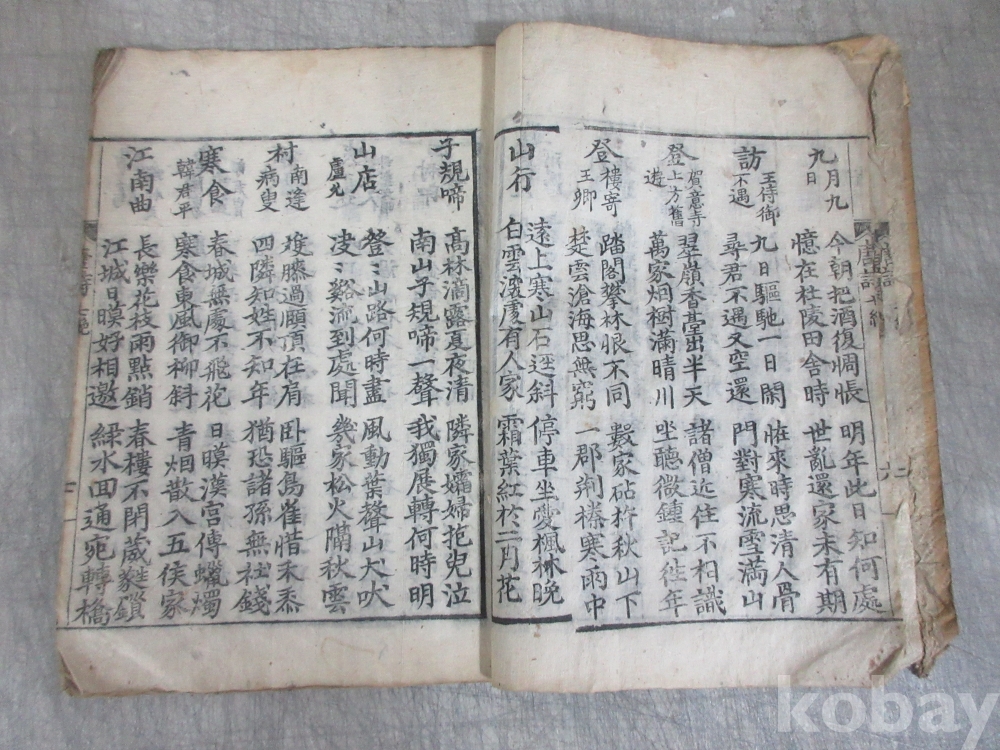 唐詩
九月九日
今朝把酒復惆悵 明年此日知何處
憶在杜陵田舍時 世亂還家未有期
訪王侍御不遇
九日驅馳一日閑 恠來時思清人骨
尋君不遇又空還 門對寒流雪滿山
登賀意寺上方舊遊
翠嶺香臺出半天 諸僧近住不相識
萬家烟樹滿晴川 坐聽微鍾記徃年
登樓寄王卿
踏閣攀林恨不同 數家砧杵秋山下
楚雲滄海思無窮 一郡荆榛寒雨中
山行
遠上寒山石逕斜 停車坐愛楓林晚
白雲深處有人家 霜葉紅於二月花
子規啼
高林滴露夏夜清 隣家孀婦抱兒泣
南山子規啼一聲 我獨展轉何時明
山店 盧允
登〻山路何時盡 風動葉聲山犬吠
〻谿流到處聞 幾家松火隔秋雲
村南逢病叟
膝過頤頂在肩 臥驅鳥雀惜禾黍
四隣知姓不知年 猶恐諸孫無社錢
寒食 韓君平
春城無處不飛花 日暯漢宮傳蠟燭
寒食東風御柳斜 青烟散入五侯家
江南曲
長樂花枝雨點銷 春樓不閉葳蕤鎖
江城日暯好相邀 綠水回通宛轉橋
kobay